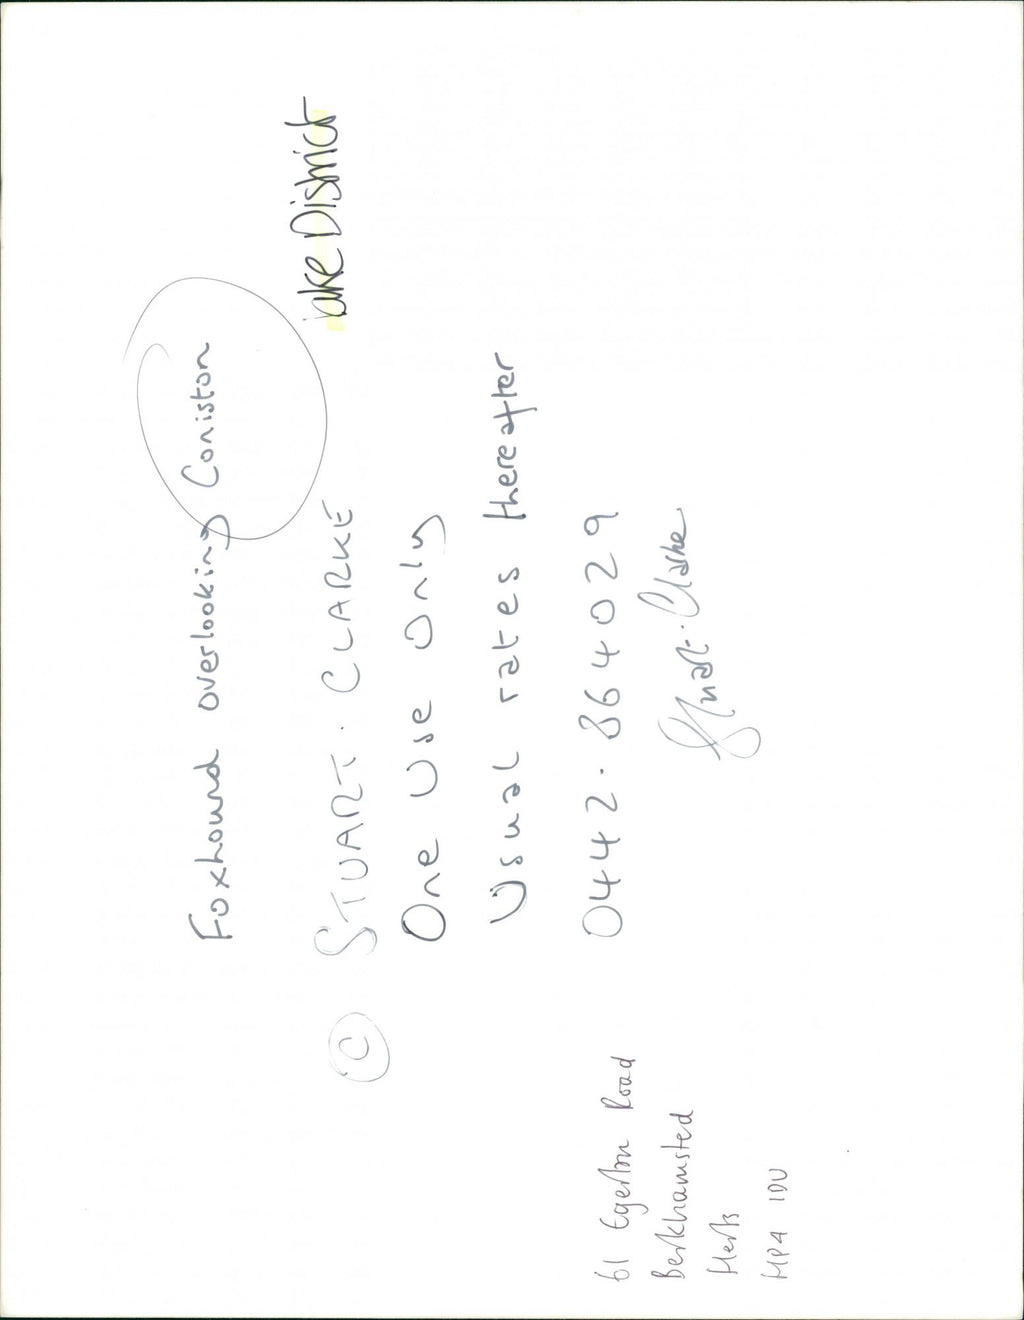 Foxhound overlooking Coniston
Lake District
© STUART. CLARKE
One Use Only
Usual rates thereafter
0442.864029
Stuart.Clarke
61 Egerton Road
Berkhamsted
Herts
HP4 1DU